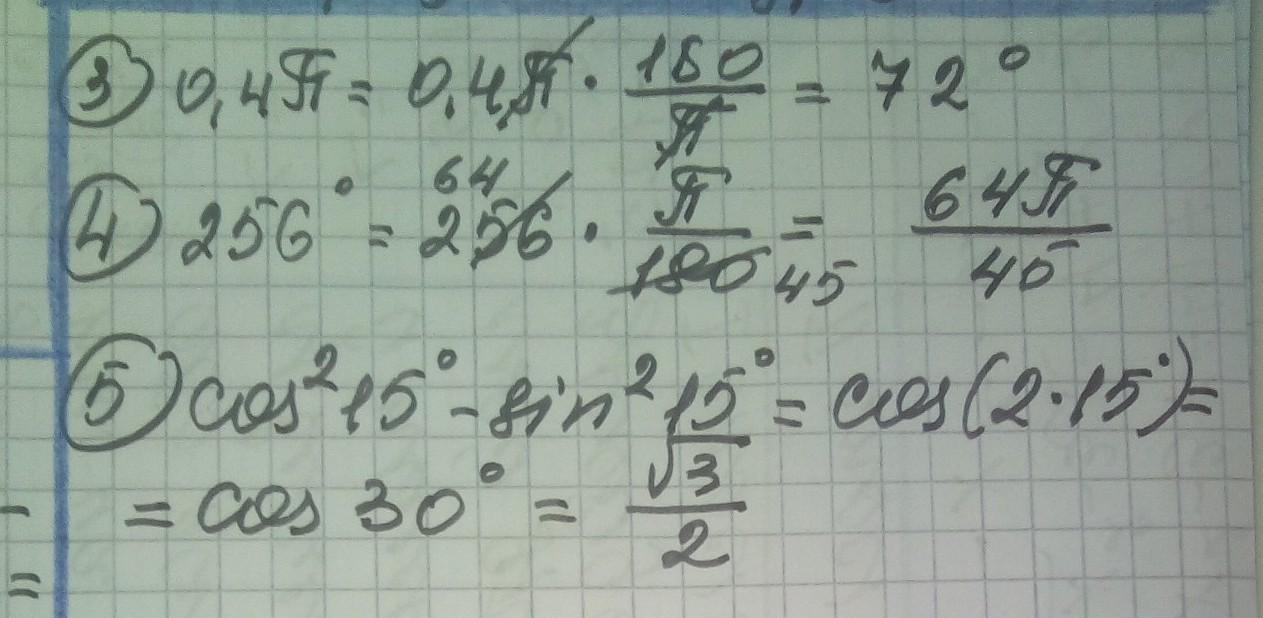 3) 0,4π = 0,4π · 180/π = 72°
4) 256° = 256 64 · π/180 45 = 64π/45
5) cos²15° - sin²15° = cos(2·15°) =
= cos 30° = √3/2
-
=